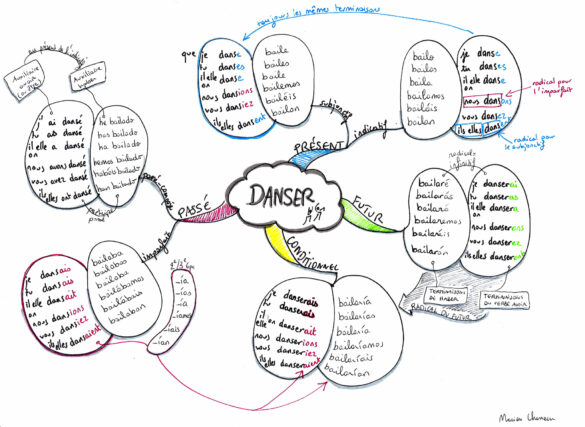 toujours les mêmes terminaisons
que je danse
tu danses
il elle danse
on
nous dansions
vous dansiez
ils elles dansent
baile
bailes
baile
bailemos
bailéis
bailen
subjonctif
bailo
bailas
baila
bailamos
bailáis
bailan
indicatif
je danse
tu danses
il elle danse
on
nous dansons
vous dansez
ils elles dansent
radical pour
l'imparfait
radical pour
le subjonctif
PRÉSENT
Auxiliaire
Auxiliaire
haber
j' ai dansé
tu as dansé
il elle a dansé
on
nous avons dansé
vous avez dansé
ils elles ont dansé
he bailado
has bailado
ha bailado
hemos bailado
habéis bailado
han bailado
participe
passé
passé composé
PASSÉ
DANSER
FUTUR
radical =
infinitif
bailaré
bailarás
bailará
bailaremos
bailaréis
bailarán
je danserai
tu danseras
il elle dansera
on
nous danserons
vous danserez
ils elles danseront
TERMINAISONS
DE HABER
TERMINAISONS
DU VERBE AVOIR
RADICAL DU FUTUR
imparfait
je dansais
tu dansais
il elle dansait
on
nous dansions
vous dansiez
ils elles dansaient
bailaba
bailabas
bailaba
bailábamos
bailabais
bailaban
2e/3e gpe
-ía
-ías
-ía
-íamos
-íais
-ían
CONDITIONNEL
je danserais
tu danserais
il elle danserait
on
nous danserions
vous danseriez
ils elles danseraient
bailaría
bailarías
bailaría
bailaríamos
bailaríais
bailarían